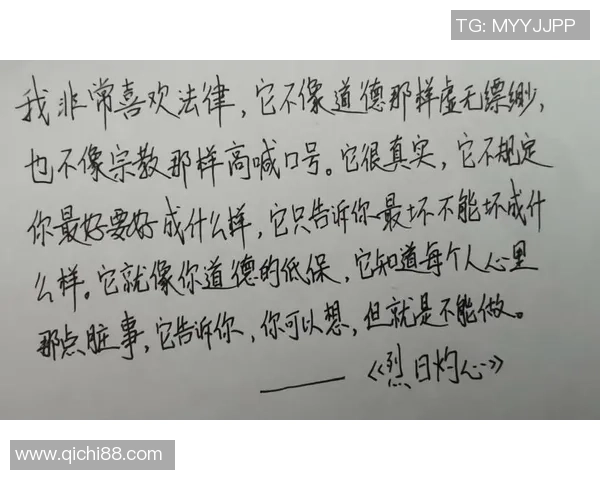 TG: MYYJJPP
我非常喜欢法律，它不像道德那样虚无缥缈，
也不像宗教那样高喊口号。它很真实，它不规定
你最好要好成什么样，它只告诉你最坏不能坏成什
么样。它就像你道德的低保，它知道每个人心里
那点脏事，它告诉你，你可以想，但就是不能做。
——《烈日灼心》
www.qichi88.com